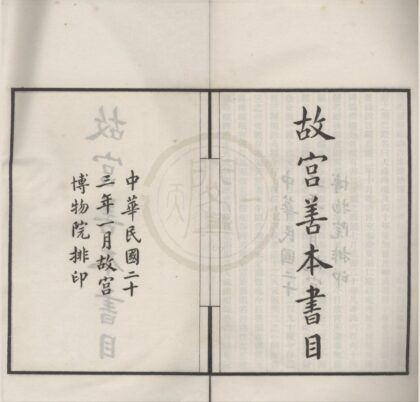 故宮善本書目
中華民國二十
三年一月故宮
博物院排印